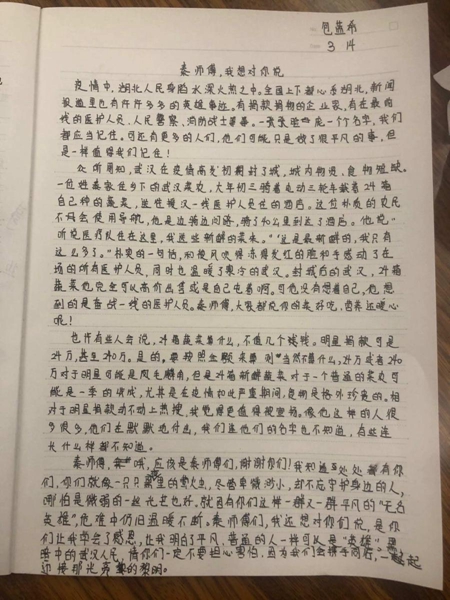 包蓝希
3 14
秦师傅,我想对你说
疫情中,湖北人民身陷水深火热之中。全国上下都心系湖北,新闻
报道里也有许许多多的英雄事迹。有捐款捐物的企业家,有在最前
线的医护人员、人民警察、消防战士等等。一张张脸一个个名字,我们
都应当记住。可还有更多的人们,他们可能只是做了很平凡的事,但
是一样值得我们记住!
众所周知,武汉在疫情高发初期封了城,城内物资、食物短缺。
一位姓秦家住乡下的武汉菜农,大年初三骑着电动三轮车载着24箱
自己种的蔬菜,送给援汉一线医护人员住的酒店。这位朴质的农民
不会使用导航,他是边骑边问路,骑了40公里到达了酒店。他说:"
听说医疗队住在这里,我送些新鲜的菜来。""这是最新鲜的,我只有
这么多了。"朴实的一句话,和被风吹得冻得发红的脸和手感动了在
场的所有医护人员,同时也温暖了寒冷的武汉。封城后的武汉,24箱
蔬菜他完全可以高价出售或是自己屯着啊。可他没有想着自己,他想
到的是奋战一线的医护人员。秦师傅,大家都说你的菜好吃,营养还暖心
呢!
也许有些人会说,24箱蔬菜算什么,不值几个钱钱。明星捐款可是
24万,甚至240万。是的。要按照金额来算 当然不算什么,24万或者240
万对于明星可能是凤毛麟角,但是24箱新鲜蔬菜对于一个普通的菜农可
能是一季的收成,尤其是在疫情如此严重期间,食物是格外珍贵的。相
对于明星捐款动不动上热搜,我觉得更值得被宣扬。像他这样的人很
多很多,他们在默默地付出,我们连他们的名字也不知道,有些连
长什么样都不知道。
秦师傅,哦,应该是秦师傅们,谢谢你们!我知道处处都有你
们,你们就像一只只黑夜里的萤火虫,尽管卑微渺小,却不忘守护身边的人,
哪怕是微弱的一丝光芒也好。就因有你们这样一群又一群平凡的"无名
英雄",危难中仍旧温暖不断。秦师傅们,我还想对你们说,是你
们让我学会了感恩,让我明白了平凡、普通的人一样可以是"英雄"。黑
暗中的武汉人民,请你们一定不要担心害怕,因为我们会携手同行,一起
迎接那光的黎明。